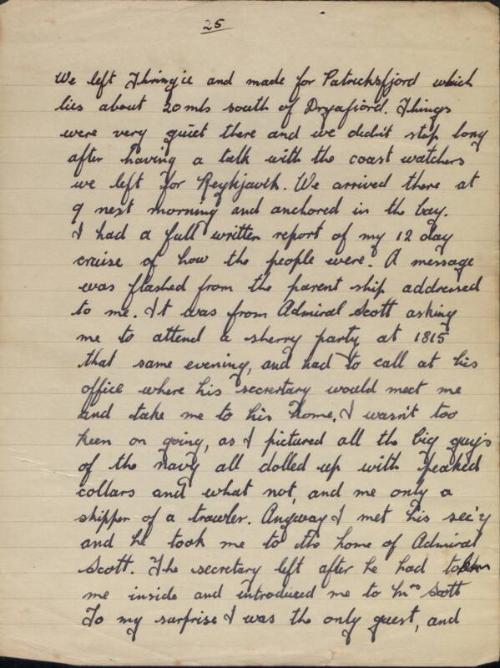 25
We left Thringie and made for Patricksfjord which
lies about 20 mls south of Dryafiord. Things
were very quiet there and we didn't stop long
after having a talk with the coast watchers
we left for Reykjaveh. We arrived there at
9 next morning and anchored in the bay.
I had a full written report of my 12 day
cruise of how the people were. A message
was flashed from the parent ship addressed
to me. It was from Admiral Scott asking
me to attend a sherry party at 1815
that same evening, and had to call at his
office where his secretary would meet me
and take me to his home. I wasn't too
keen on going, as I pictured all the big guy's
of the navy all dolled up with peaked
collars and what not, and me only a
skipper of a trawler. Anyway I met his sec'y
and he took me to the home of Admiral
Scott. The secretary left after he had taken
me inside and introduced me to Mrs Scott
To my surprise I was the only guest, and